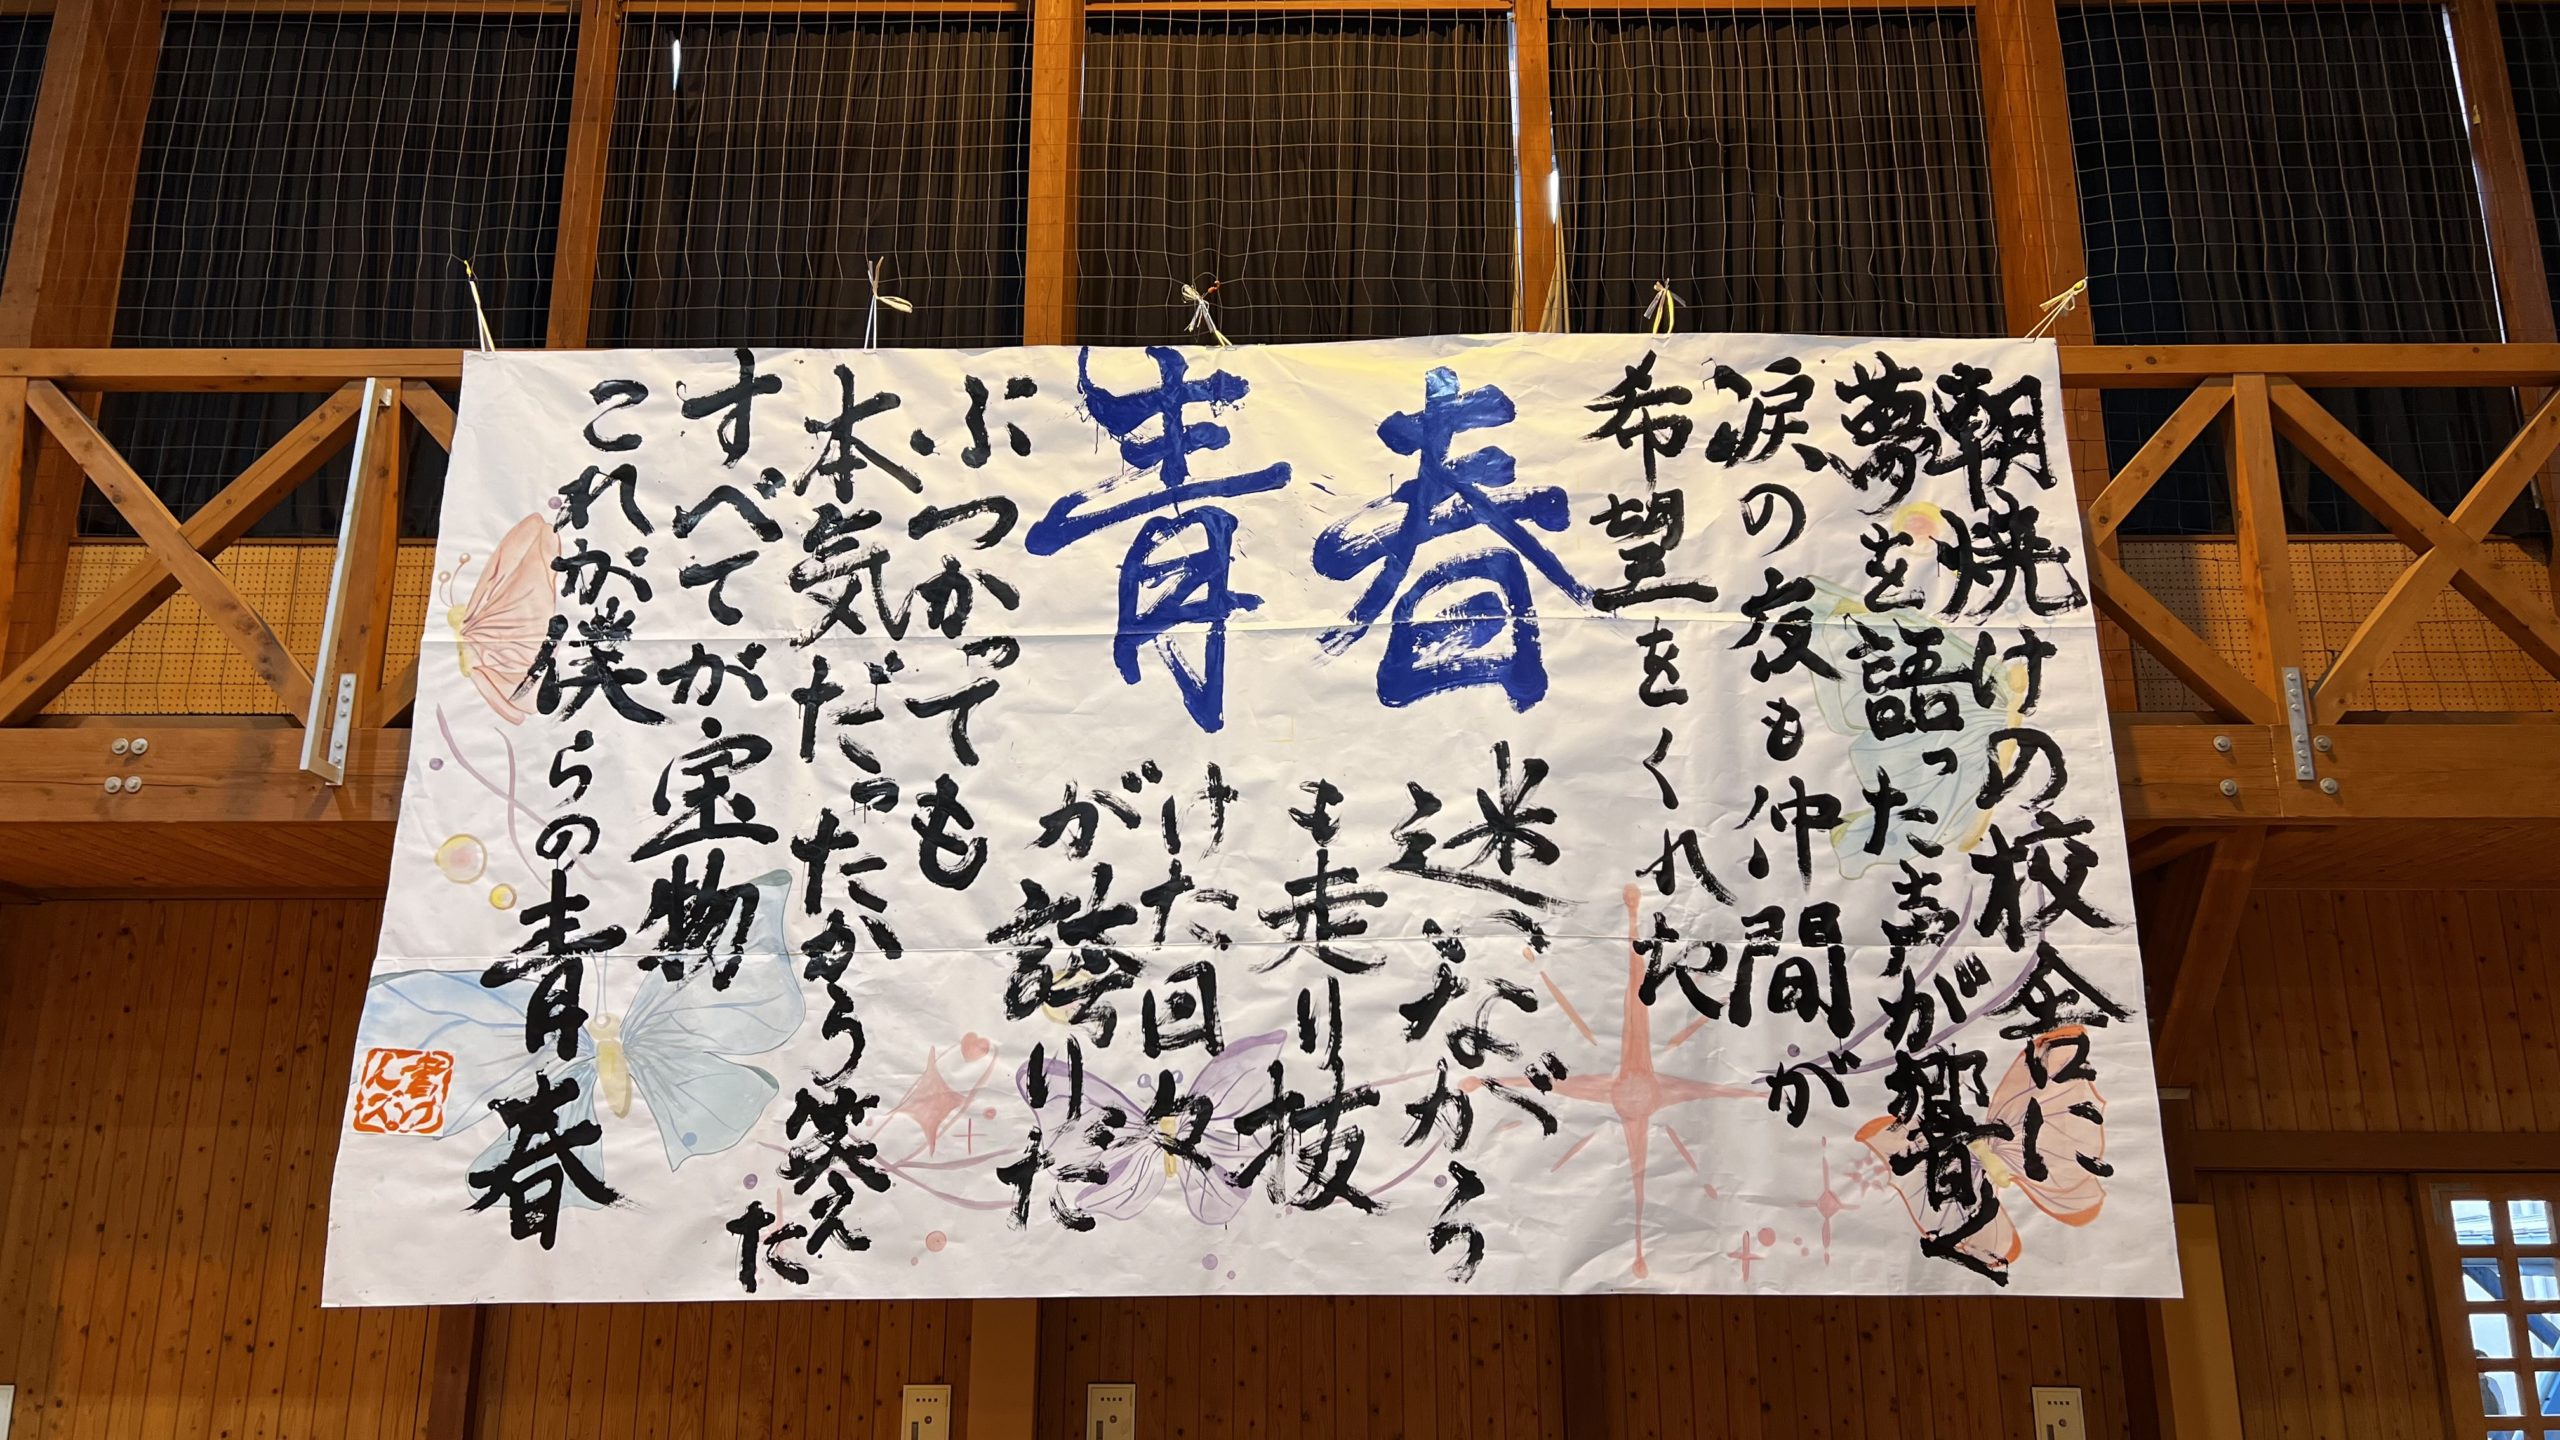 朝焼けの校舎に
夢を語った声が響く
涙の夜も仲間が
希望をくれた
青春
迷いながら
も走り抜
けた日々
が誇りだ
ぶつかっても
本気だったから笑え
た
すべてが宝物
これが僕らの青春